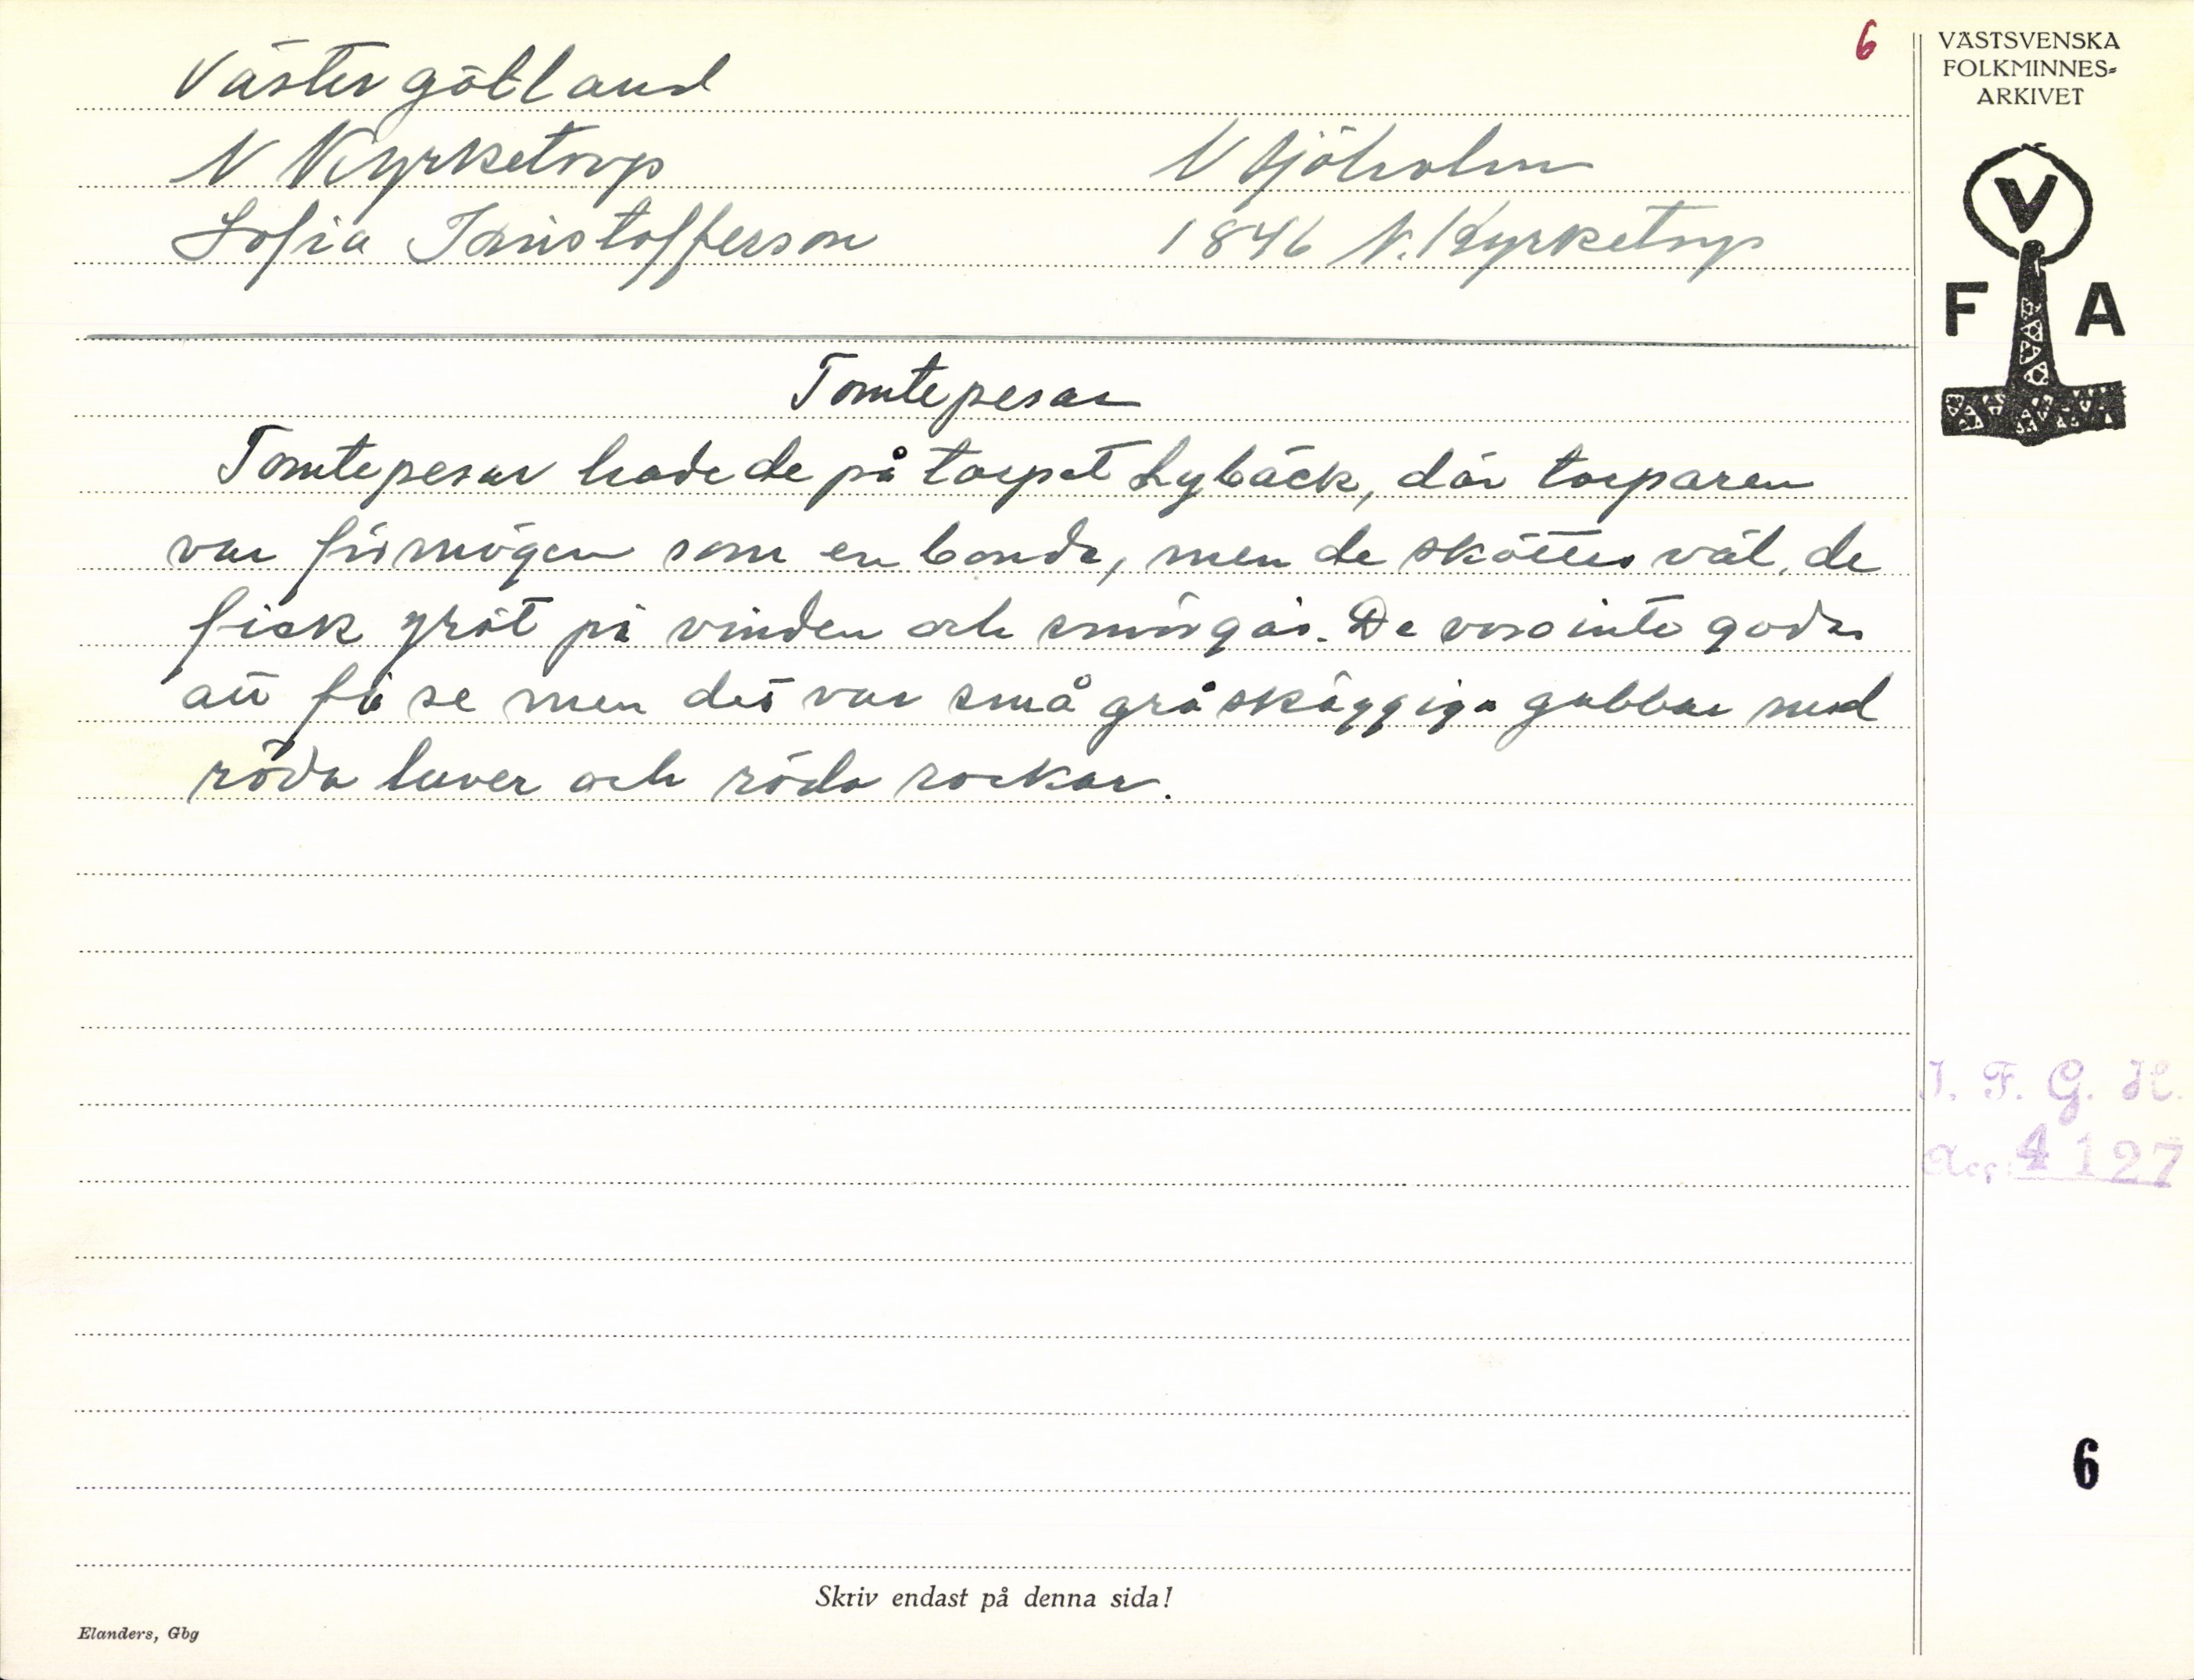 6
Västergötland
N Kyrketorp
N Sjöholm
Sofia Kristofferson
1846 N. Kyrketorp
Tomtepesar
Tomtepesar hade de på torpet Lybäck, där torparen
var förmögen som en bonde, men de sköttes väl, de
fick gröt på vinden och smörgås. De voro inte goda
att få se men det var små gråskäggiga gubbar med
röda luver och röda rockar.
Skriv endast på denna sida!
Elanders, Gbg
VÄSTSVENSKA
FOLKMINNES-
ARKIVET
V
F A
I. F. G. H.
Acc: 4127
6